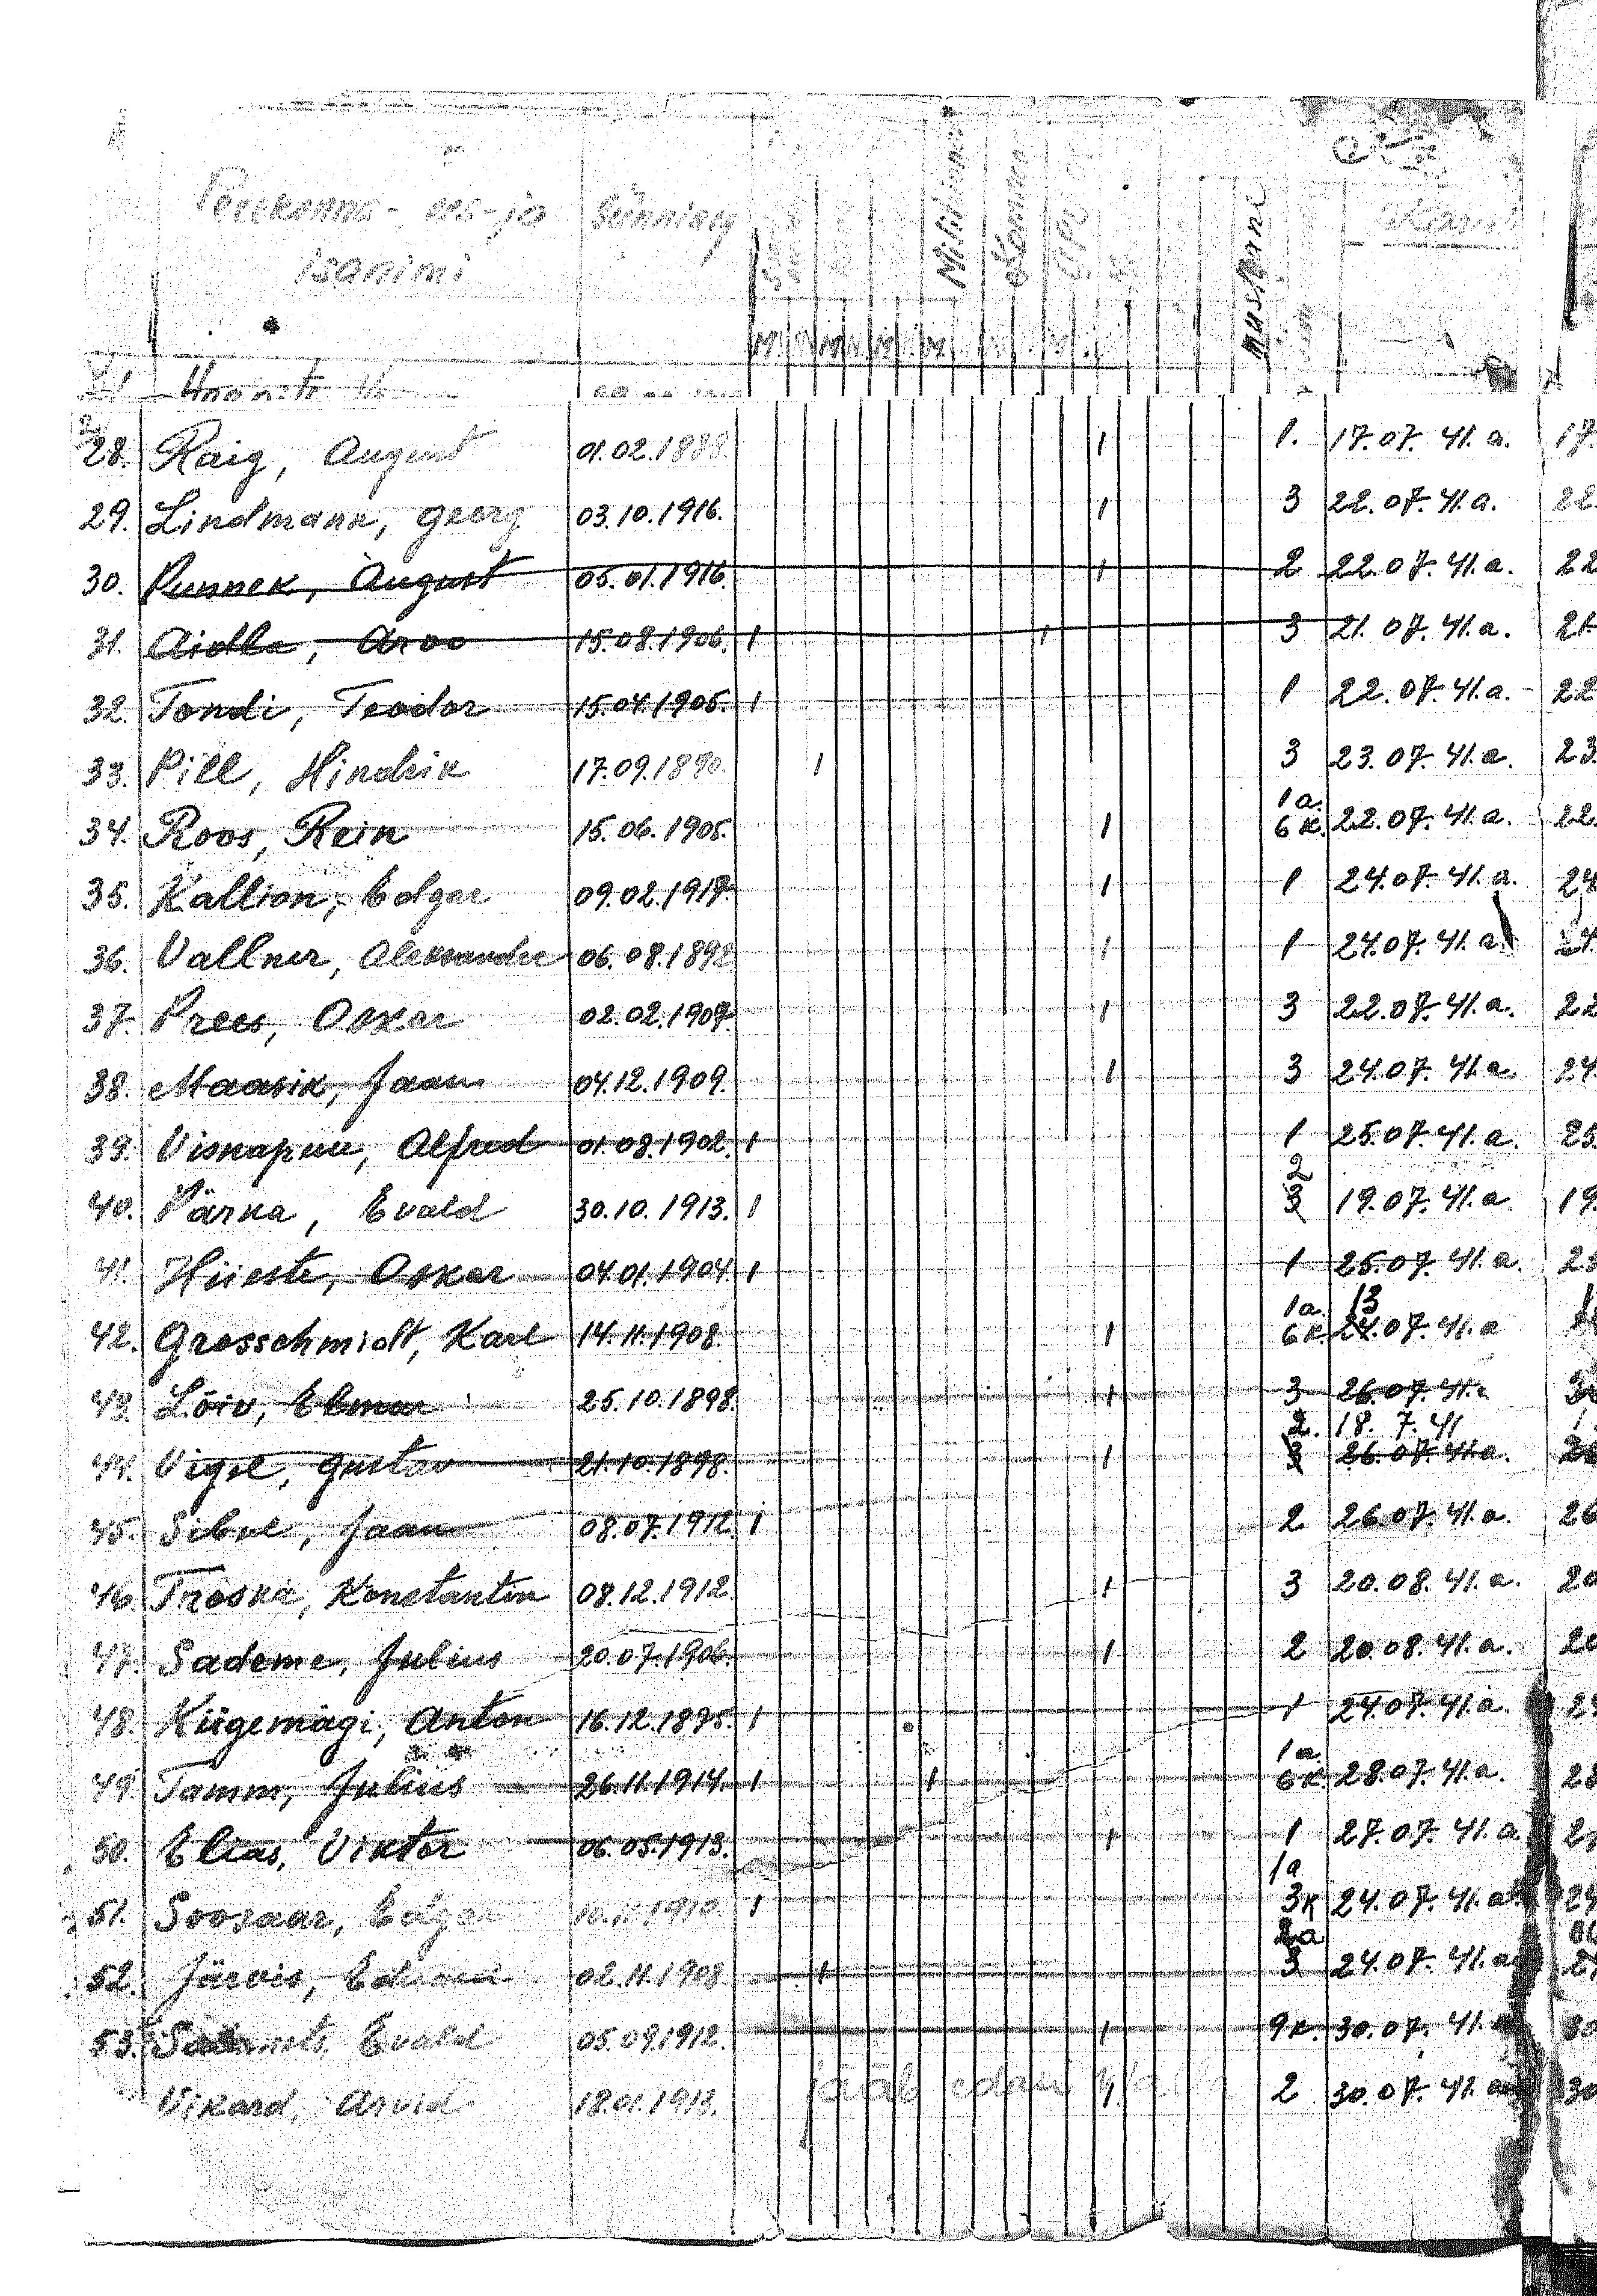 Perekonna- ees- ja Sünniaeg
isanimi
Militsionär
28. Raig, August 01.02.1888. 1 1. 17.07.41.a. 17.
29. Lindmann, Georg 03.10.1916. 1 3 22.07.41.a. 22.
30. Punnek, August 05.01.1916. 1 2 22.07.41.a. 22
31. Aidla, Arvo 15.08.1906. 1 1 3 21.07.41.a. 21.
32. Tondi, Teodor 15.04.1905. 1 1 22.07.41.a. 22
33. Pill, Hindrik 17.09.1890. 1 3 23.07.41.a. 23.
34. Roos, Rein 15.06.1905. 1 1a. 6k. 22.07.41.a. 22.
35. Kallion, Edgar 09.02.1917. 1 1 24.07.41.a. 24
36. Vallner, Aleksander 06.08.1892 1 1 24.07.41.a.
37. Prees, Oskar 02.02.1907. 1 3 22.07.41.a. 22
38. Maasik, Jaan 04.12.1909. 1 3 24.07.41.a. 24.
39. Visnapuu, Alfred 01.08.1902. 1 1 25.07.41.a. 25
40. Pärna, Evald 30.10.1913. 1 2 3 19.07.41.a. 19.
41. Hiieste, Oskar 04.01.1904. 1 1 25.07.41.a.
42. Grosschmidt, Karl 14.11.1908. 1 1a. 6k. 13 24.07.41.a
43. Lõiv, Elmar 25.10.1898. 1 3 26.07.41.a
44. Vigel, Gustav 21.10.1898. 1 2. 3 18.7.41 26.07.41.a.
45. Sibul, Jaan 08.07.1912. 1 2 26.07.41.a. 26
46. Troska, Konstantin 08.12.1912. 1 3 20.08.41.a. 20
47. Sademe, Julius 20.07.1906. 1 2 20.08.41.a. 20
48. Kiigemägi, Anton 16.12.1895. 1 1 24.07.41.a.
49. Tamm, Julius 26.11.1914. 1 1 1a. 6k. 28.07.41.a. 28
50. Elias, Viktor 06.05.1913. 1 1 27.07.41.a.
51. Soosaar, Edgar 1 1a 3k 24.07.41.a. 24
52. Järvis, 02.11.1908 1 2a 3 24.07.41.a.
53. Evald 05.09.1912. 1 9k. 30.07.41.a 30
Vikard, Arvid 18.01.1913. jääb edasi 1 2 30.07.41.a 30